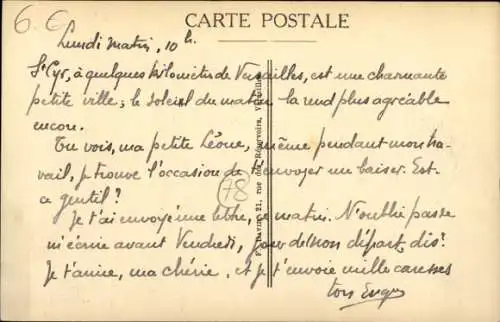 6. C
CARTE POSTALE
Lundi matin, 10 h.
St Cyr, à quelques kilomètres de Versailles, est une charmante
petite ville ; le soleil du matin la rend plus agréable
encore.
Tu vois, ma petite Léone, même pendant mon tra-
vail, je trouve l'occasion de t'envoyer un baiser. Est-
ce gentil ?
78
Je t'ai envoyé une lettre, ce matin. N'oublie pas de
m'écrire avant Vendredi, jour de mon départ, dis ?
Je t'aime, ma chérie, et je t'envoie mille caresses
ton
21, rue des Réservoirs, Versailles